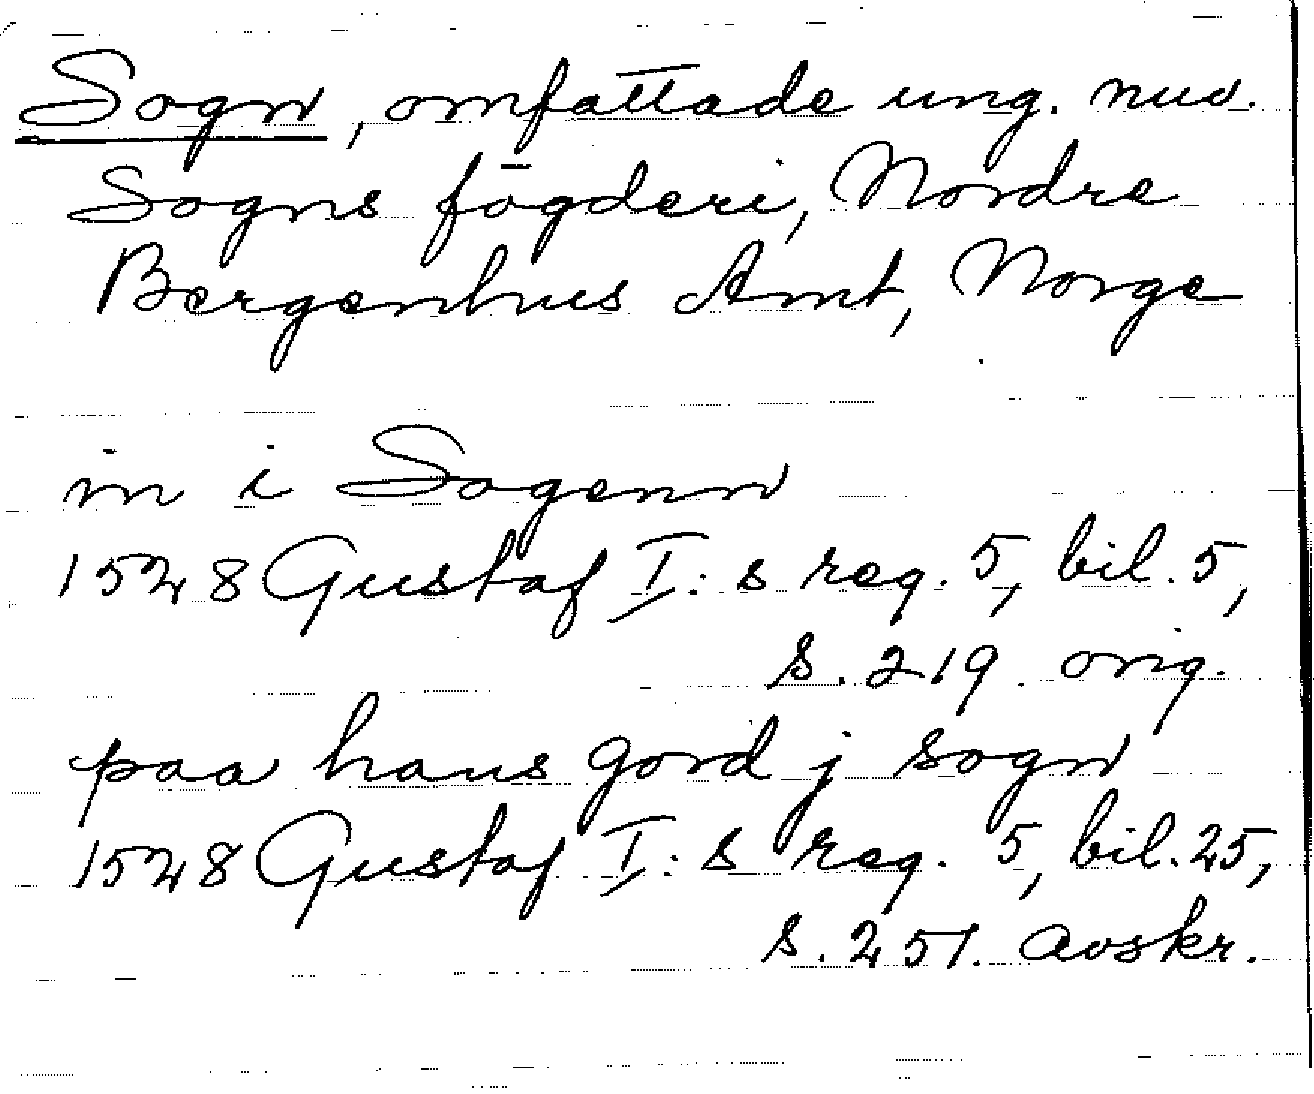 Sogn, omfattade ung. nuv.
Sogns fögderi, Nordre
Bergenhus Amt, Norge
in i Sogenn
1528 Gustaf I:s reg. 5, bil. 5,
s. 219. orig.
paa hans gord j sogn
1528 Gustaf I:s reg. 5, bil. 25,
s. 251. avskr.